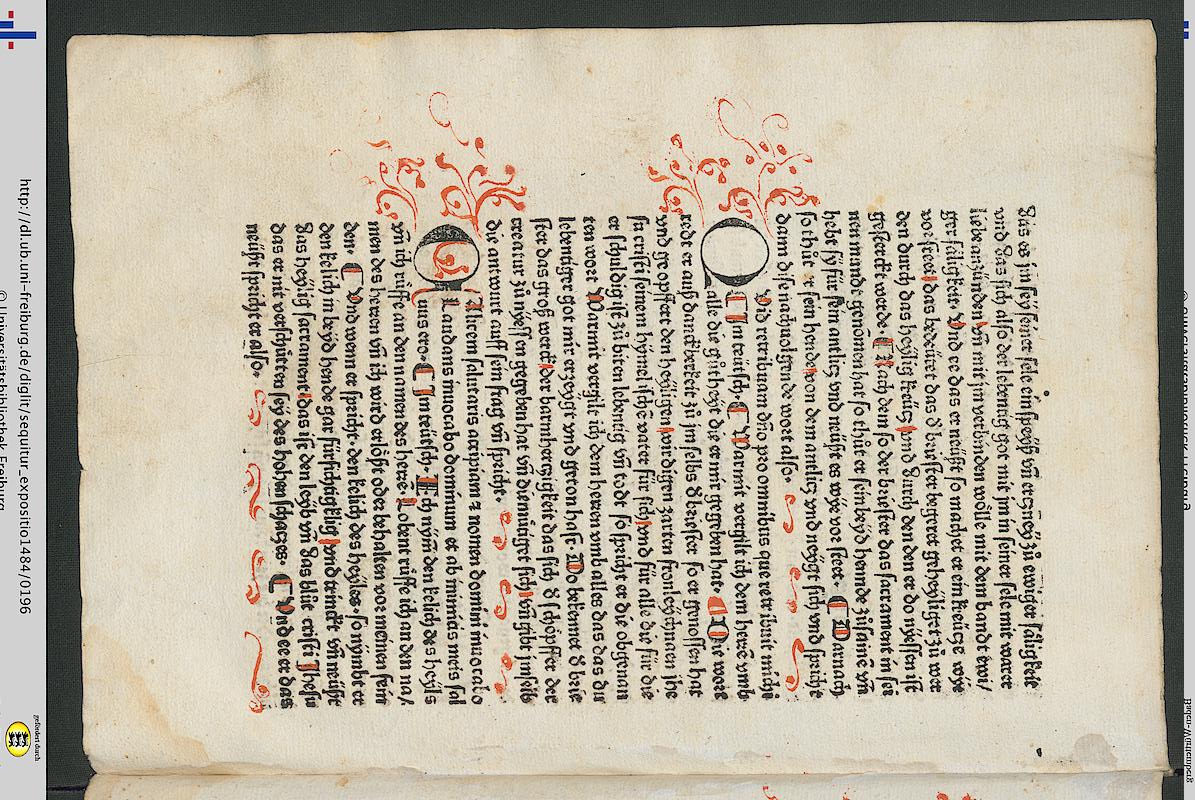 das es im sey seiner sele ein speyß vñ ertzney zů ewiger säligkeit
vnd das sich also der lebentig got mit im in seiner sele mit warer
liebe anzünden vñ mit im verbinden wölle mit dem bandt ewi/
ger säligkeit. Vnd ee das er neüßt so machet er ein kreütze wye
vor steet das bedeütet das d' briester begeret geheyliget zů wer
den durch das heylig kreütz vnd durch den den er do nyessen ist
gesterckt werde. Nach dem so der briester das sacrament in sei
nen munde genomen hat so thůt er sein beyd hennde zůsame vñ
hebt sy für sein antlitz vnd neüßt es wye vor steet. Darnach
so thůt er sein hende von dem antlitz vnd neygt sich vnd spricht
dann dise nachuolgende wort also.
Quid retribuam dño pro omnibus que retribuit michi
In teütsch. Warmit vergilt ich dem herrē vmb
alle die gůtheyt die er mit gegeben hat. Die wort
redt er auß danckberkeit zů im selbs d' briester so er genossen hat
vnd geopffert den heyligen wirdigen zarten fronleychnam jhe
su cristi seinem hymelischē vater für sich vnd für alle die für die
er schuldig ist zů biten lebentig vñ todt so spricht er die obgenan
ten wort Warmit vergilt ich dem herren vmb alles das das du
lebentiger got mir erzeygt vnd geton hast. Do bekennet d' brie
ster das groß werck der barmhertzigkeit das sich d' schöpffer der
creatur zů nyessen gegeben hat vñ diemütiget sich vñ gibt jm selb
die antwurt auff sein frag vñ spricht.
Calicem salutaris accipiam et nomen domini inuocabo
Laudans inuocabo dominum et ab inimicis meis sal
uus ero. In teütsch. Ich nym den kelich des heyls
vñ ich rüffe an den namen des herrē. Lobent rüffe ich an den na/
men des herren vñ ich wird erlößt oder behalten vor meinen fein
den. Vnd wenn er spricht. den kelich des heyles. so nymbt er
den kelich in beyd hende gar fürsichtiklich vnd trinckt vñ neüßt
das heylig sacrament das ist den leyb vñ das blůt cristi Jhesu
das er nit verschütten sey des hohen schatzes. Vnd ee er das
neüßt spricht er also.
http://dl.ub.uni-freiburg.de/diglit/sequitur_expositio1484/0196
© Universitätsbibliothek Freiburg
gefördert durch